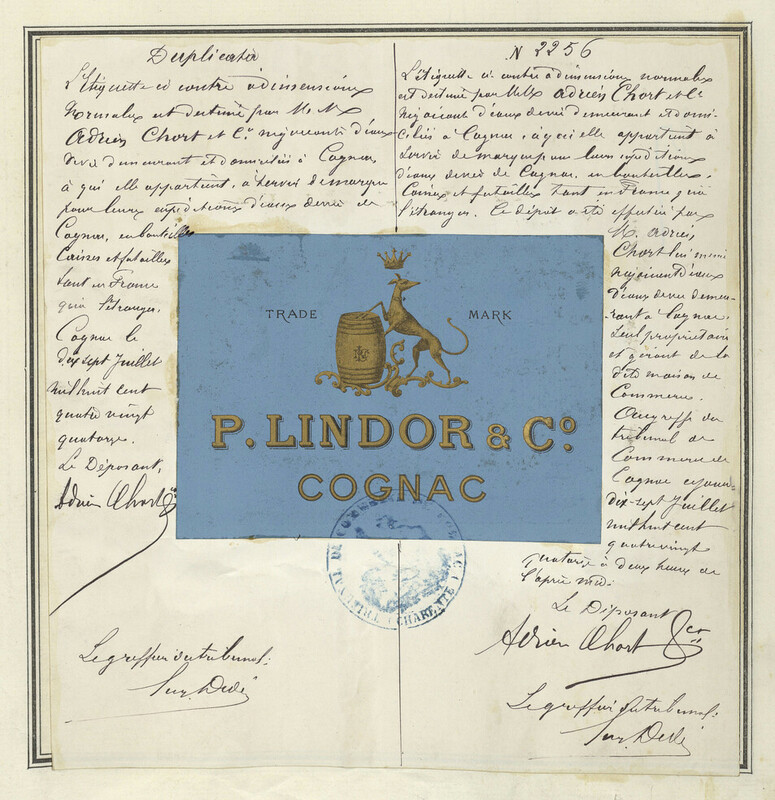 Duplicata
L'étiquette ci contre a dimensions
Normales est destiné par M.M
Adrien Chort et Cie négociants d'eaux
de vie demeurant et domiciliés à Cognac,
à qui elle appartient, a servir de marque
pour leurs expéditions d'eaux de vie de
Cognac, en bouteilles
Caisses et futailles
tant en France
qu'à l'étranger.
Cognac le
dix sept Juillet
mil huit cent
quatre vingt
quatorze.
Le Déposant,
Adrien Chort & Cie
Le greffier du tribunal:
N 2256
L'étiquette ci contre a dimensions normales
est destiné par M.M. Adrien Chort et Cie
négociants d'eaux de vie demeurant et domi-
ciliés à Cognac, à qui elle appartient à
servir de marque pour leurs expéditions
d'eaux de vie de Cognac, en bouteilles,
Caisses et futailles tant en France qu'à
l'étranger. Ce dépôt a été effectué par
M. Adrien
Chort lui même
négociant d'eaux
d'eaux de vie demeu-
rant à Cognac,
seul propriétaire
et gérant de la
dite maison de
Commerce.
Au greffe du
tribunal de
Commerce de
Cognac ce jour
dix-sept Juillet
mil huit cent
quatre vingt
quatorze à deux heures de
l'après midi.
Le Déposant
Adrien Chort & Cie
Le greffier du tribunal:
TRADE MARK
P. LINDOR & Co
COGNAC
TRIBUNAL DE COMMERCE DE COGNAC (CHARENTE)